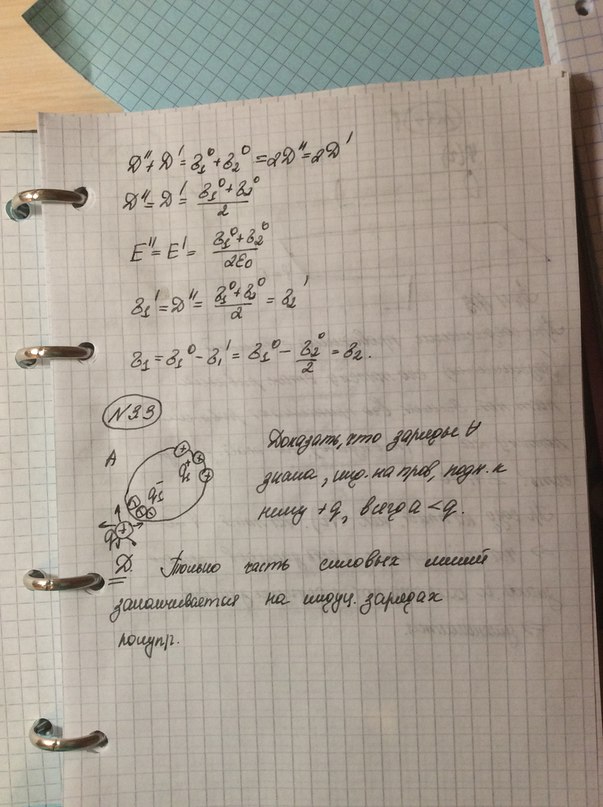 D'' + D' = σ₁⁰ + σ₂⁰ = 2D'' = 2D'
D'' = D' = (σ₁⁰ + σ₂⁰)/2
E'' = E' = (σ₁⁰ + σ₂⁰)/(2ε₀)
σ₁' = D'' = (σ₁⁰ + σ₂⁰)/2 = σ₂'
σ₁ = σ₁⁰ - σ₁' = σ₁⁰ - σ₂⁰/2 = σ₂.
N 33
A
Доказать, что заряды ∀
знака, инд. на пров, подн. к
нему +q, всегда < q.
Д Только часть силовых линий
заканчивается на индуц. зарядах